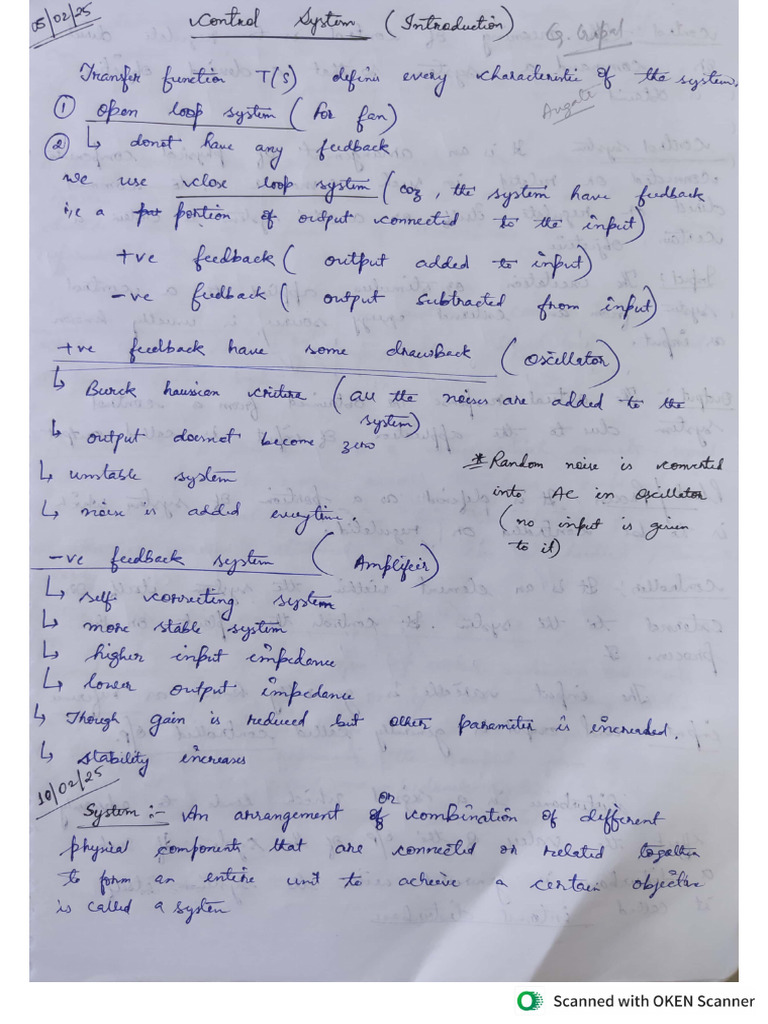 05/02/25
Control System (Introduction)
Transfer function T(s) defines every characteristic of the system.
① Open loop system (for fan)
② ↳ donot have any feedback
we use close loop system (coz, the system have feedback
i,e a portion of output connected to the input)
+ve feedback ( output added to input)
-ve feedback ( output subtracted from input)
+ve feedback have some drawback (Oscillator)
↳ Burck hausian criteria (all the noises are added to the
system)
↳ output doesnot become zero
↳ unstable system
↳ noise is added everytime.
* Random noise is converted
into AC in oscillator
(no input is given
to it)
-ve feedback system (Amplifier)
↳ self correcting system
↳ more stable system
↳ higher input impedance
↳ lower output impedance
↳ Though gain is reduced but other parameter is increased.
↳ stability increases
10/02/25
System :- An arrangement or combination of different
physical components that are connected or related together
to form an entire unit to achieve a certain objective
is called a system
Scanned with OKEN Scanner